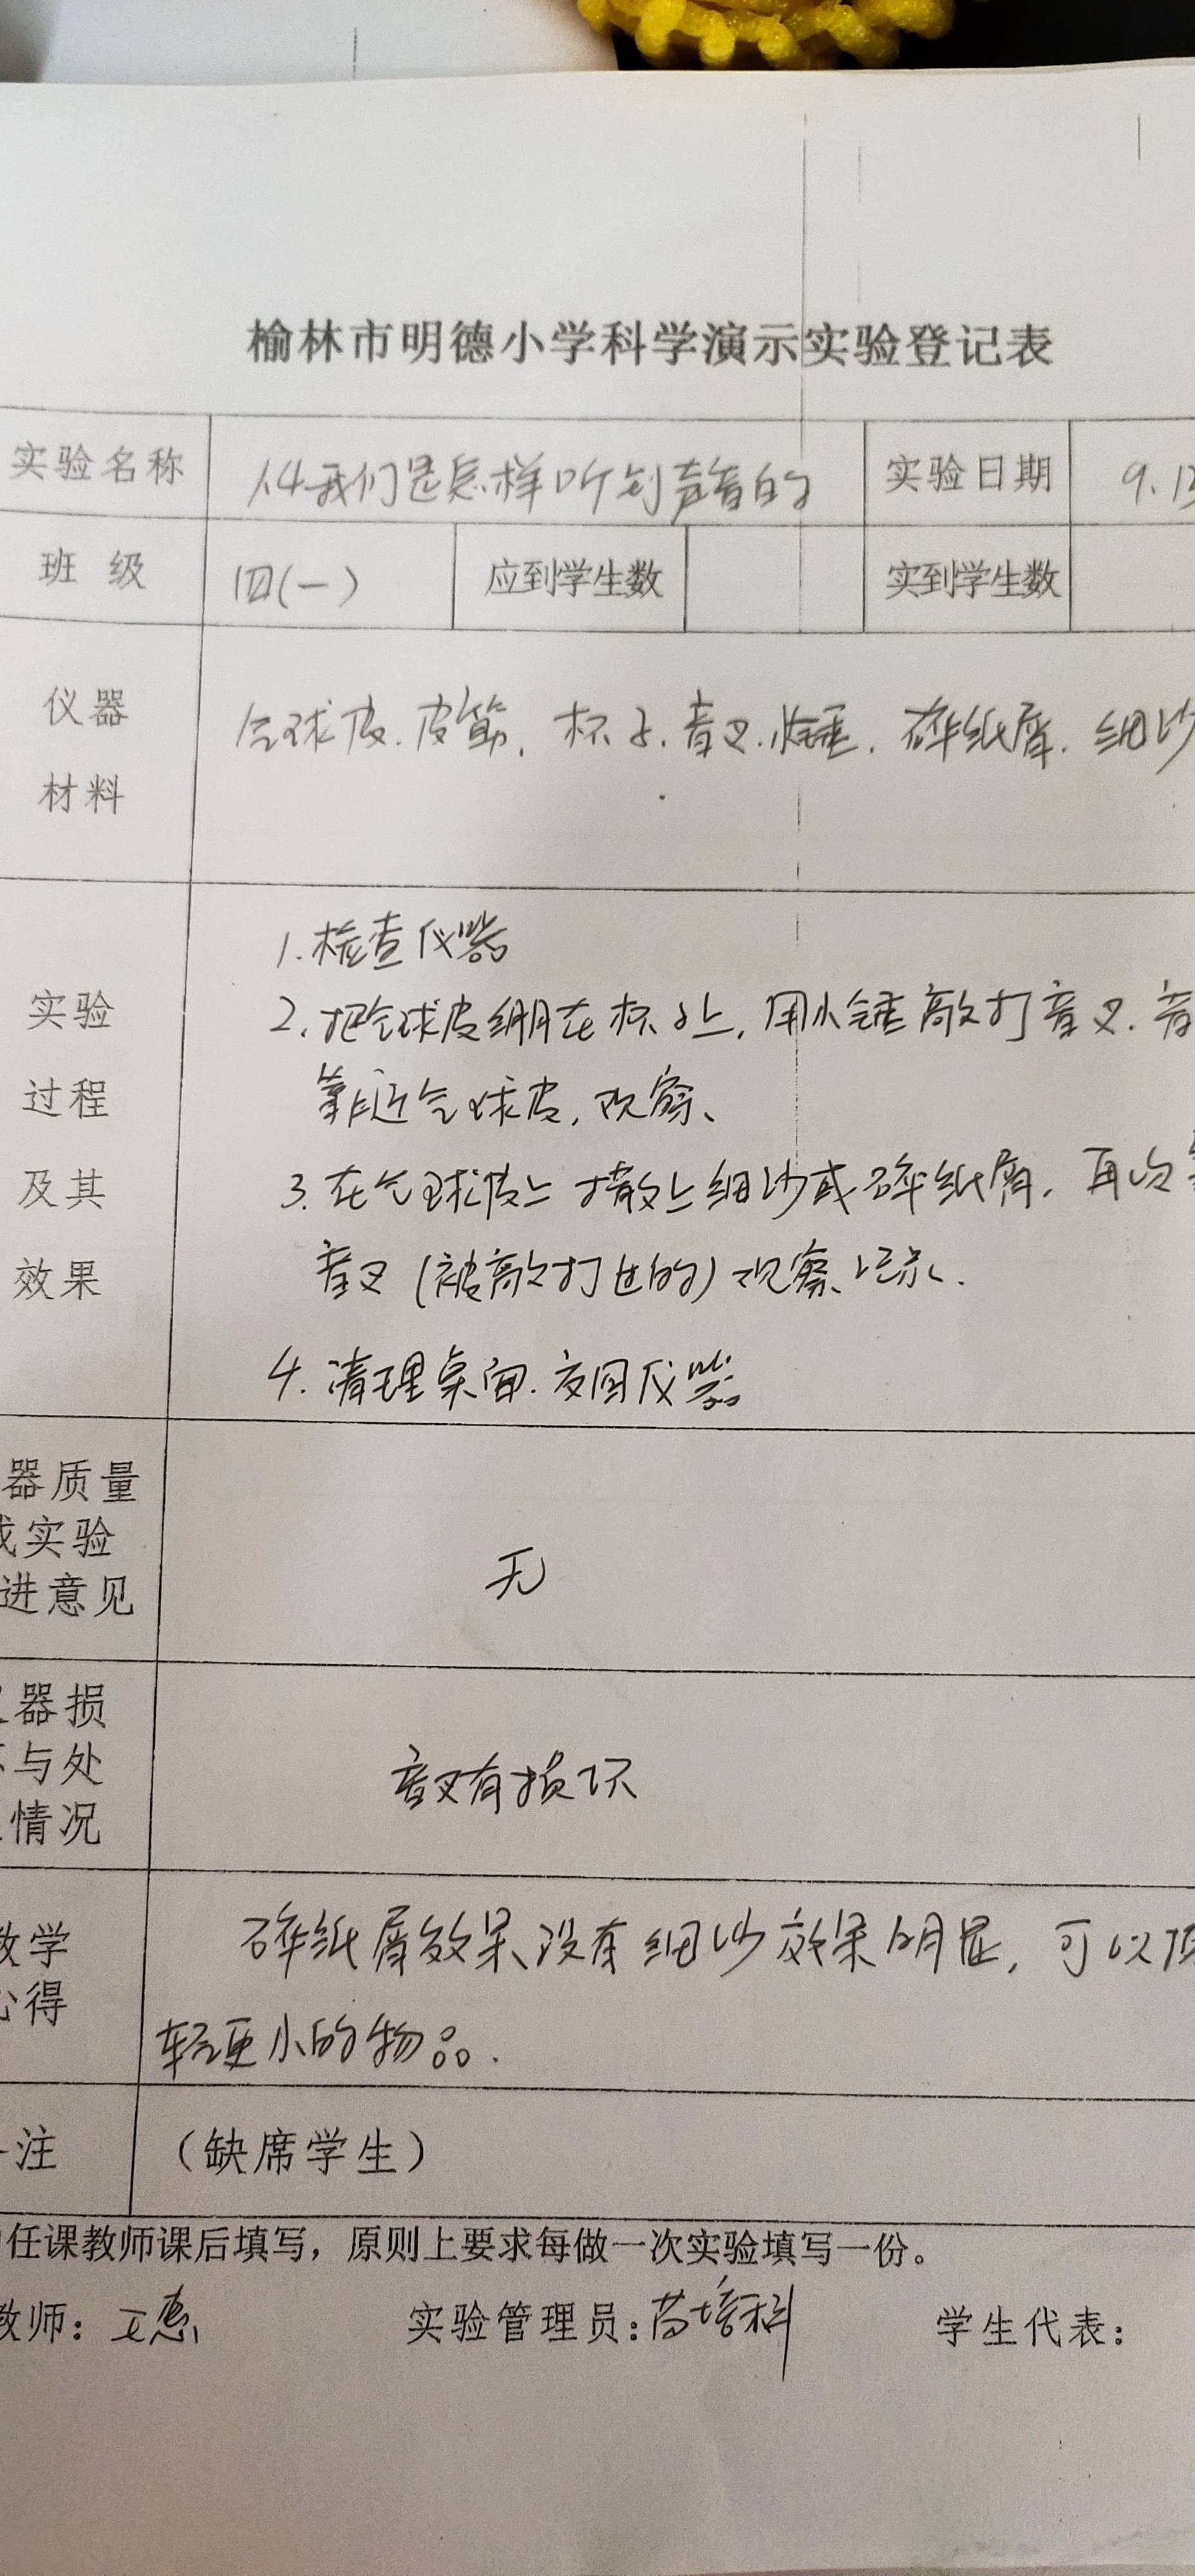 榆林市明德小学科学演示实验登记表
实验名称 1.4我们是怎样听到声音的 实验日期 9.13
班 级 四(一) 应到学生数 实到学生数
仪器 气球皮.皮筋.杯子.音叉.小锤.碎纸屑.细沙
材料
1.检查仪器
实验 2.把气球皮绷在杯子上,用小锤敲打音叉.音
过程 靠近气球皮,观察、
及其 3.在气球皮上撒上细沙或碎纸屑,再次
效果 音叉(被敲打过的)观察、记录.
4.清理桌面.交回仪器
器质量
或实验 无
进意见
器损
与处 音叉有损坏
情况
教学 碎纸屑效果没有细沙效果明显,可以
心得 轻更小的物品.
注 (缺席学生)
任课教师课后填写,原则上要求每做一次实验填写一份。
教师: 王惠 实验管理员: 培科 学生代表: